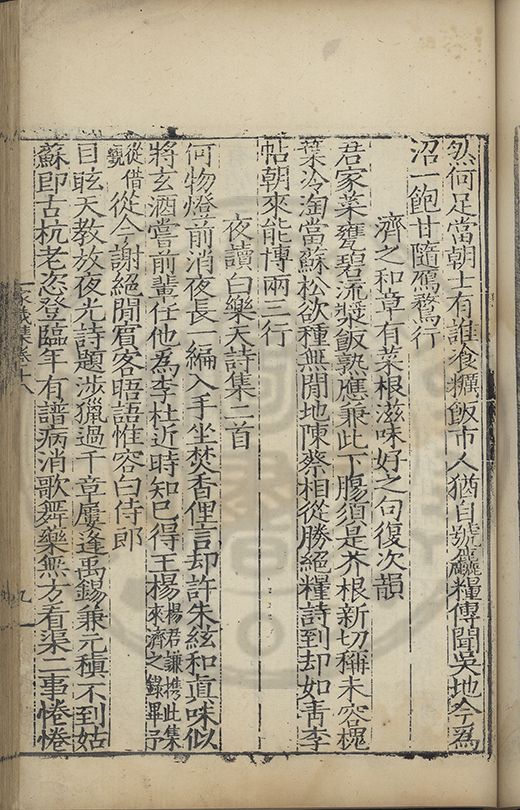 然何足當朝士有誰飡糲飯市人猶自號贏糧傳聞吳地今為
沼一飽甘隨鴈鶩行
濟之和章有菜根滋味好之句復次韻
君家菜甕碧流漿飯熟應兼此下腸須是芥根新切稱未容槐
葉冷淘當蘇松欲種無閒地陳蔡相從勝絕糧詩到却如青李
帖朝來能博兩三行
夜讀白樂天詩集二首
何物燈前消夜長一編入手坐焚香俚言却許朱絃和真味似
將玄酒嘗前輩任他為李杜近時知已得王楊楊君謙携此集來濟之錄畢予
從借觀從今謝絕閒賓客晤語惟容白侍郎
目眩天教放夜光詩題涉獵過千章屢逢禹錫兼元稹不到姑
蘇即古杭老恣登臨年有譜病消歌舞藥無方看渠二事惓惓